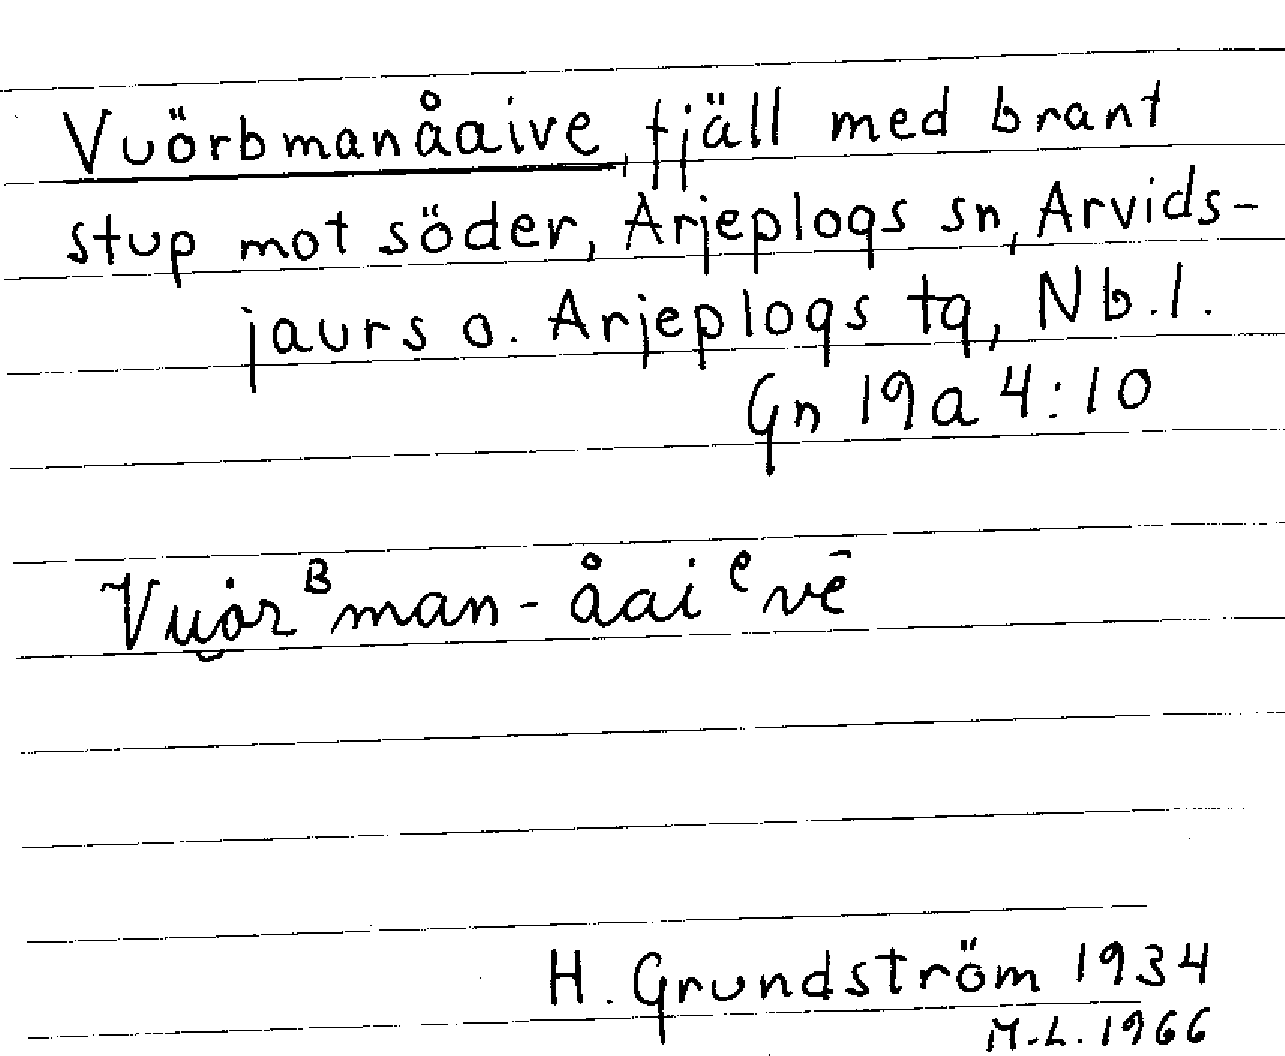 Vuörbmanåaive, fjäll med brant
stup mot söder, Arjeplogs sn, Arvids-
jaurs o. Arjeplogs tg, Nb.l.
Gn 19a 4:10
Vu̮ȧrᴮman-åaiᵉvē
H. Grundström 1934
M.L. 1966